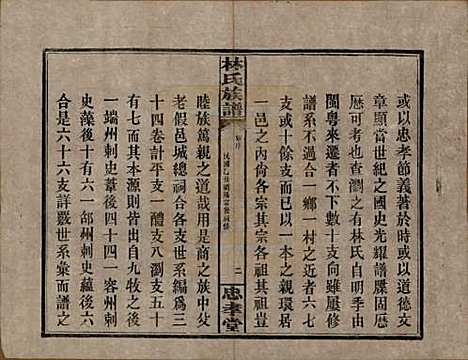 或以忠孝節義著於時或以道德文
章顯當世紀之國史光耀譜牒固厯
厯可考也查瀏之有林氏自明季由
閩粵來遷者不下數十支向雖屢修
譜系不過合一鄉一村之近者六七
支或十餘支而已以一本之親環居
一邑之內各宗其宗各祖其祖豈
林氏族譜
卷序
二
忠孝堂
睦族篤親之道哉用是商之族中父
老假邑城總祠合各支世系編爲三
十四卷計平支一醴支八瀏支五十
有七而其本源則皆出自九牧之後
一端州刺史葦後四十四一容州刺
史藻後十有六一邵州刺史蘊後六
合是六十六支詳數世系彙而譜